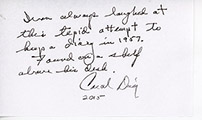 Ivan always laughed at
this tepid attempt to
keep a diary in 1957.
Found (on) a shelf
above his desk.
Carol
2015